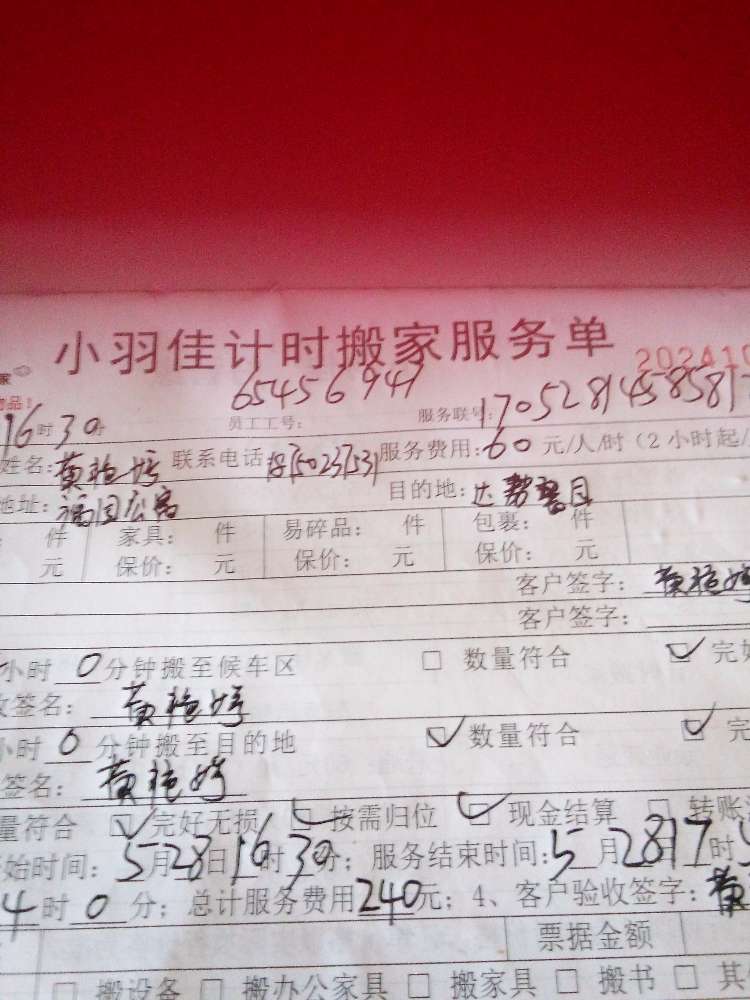 小羽佳计时搬家服务单
家 202410
物品！ 65456941
16时30分 员工工号： 服务联号：17052814585817
姓名：黄艳婷 联系电话 服务费用：60元/人/时（2小时起/
地址：福园公寓 目的地：
件 家具： 件 易碎品： 件 包裹： 件
元 保价： 元 保价： 元 保价： 元
客户签字：黄艳婷
客户签字：
小时0分钟搬至候车区 □ 数量符合 ☑ 完好
收签名：黄艳婷
小时0分钟搬至目的地 ☑ 数量符合 ☑ 完
签名：黄艳婷
量符合 ☑ 完好无损 ☑ 按需归位 ☑ 现金结算 □ 转账
始时间：5月28日16时30分；服务结束时间：5月2817时
4时0分；总计服务费用240元；4、客户验收签字：黄
票据金额
□ 搬设备 □ 搬办公家具 □ 搬家具 □ 搬书 □ 其